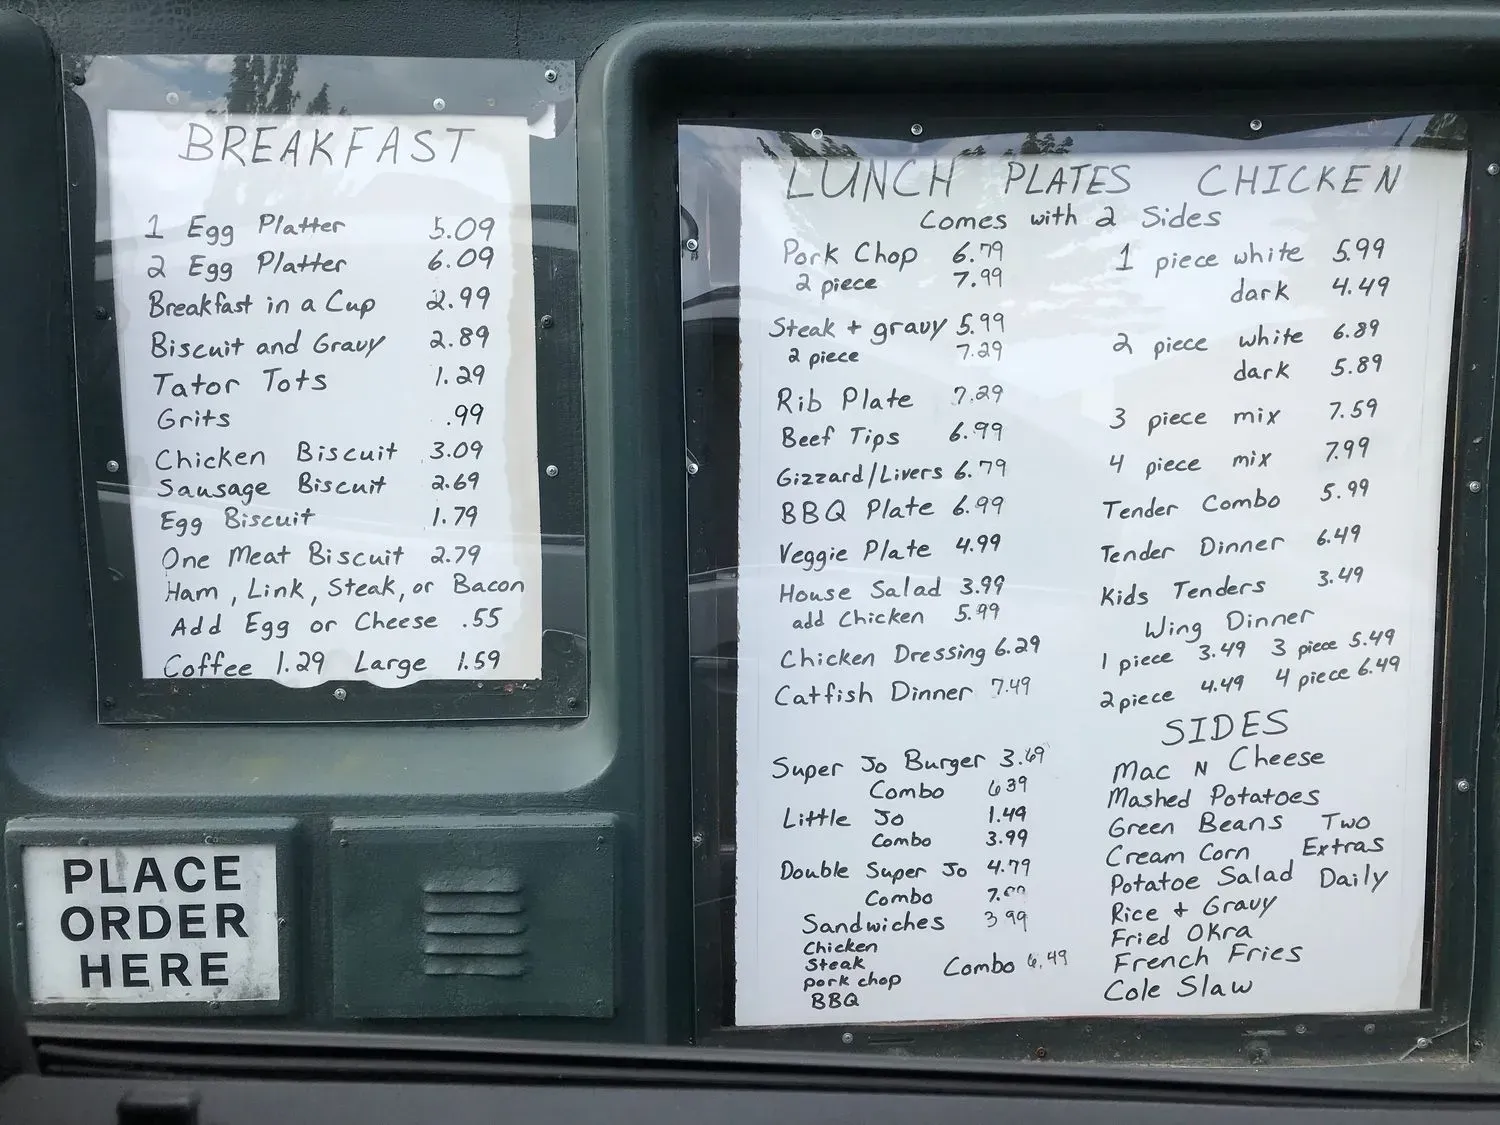 BREAKFAST
1 Egg Platter 5.09
2 Egg Platter 6.09
Breakfast in a Cup 2.99
Biscuit and Gravy 2.89
Tator Tots 1.29
Grits .99
Chicken Biscuit 3.09
Sausage Biscuit 2.69
Egg Biscuit 1.79
One Meat Biscuit 2.79
Ham, Link, Steak, or Bacon
Add Egg or Cheese .55
Coffee 1.29 Large 1.59
PLACE
ORDER
HERE
LUNCH PLATES CHICKEN
Comes with 2 Sides
Pork Chop 6.79
2 piece 7.99
Steak + gravy 5.99
2 piece 7.29
Rib Plate 7.29
Beef Tips 6.99
Gizzard/Livers 6.79
BBQ Plate 6.99
Veggie Plate 4.99
House Salad 3.99
add Chicken 5.99
Chicken Dressing 6.29
Catfish Dinner 7.49
Super Jo Burger 3.69
Combo 6.39
Little Jo 1.49
Combo 3.99
Double Super Jo 4.79
Combo
Sandwiches 3.99
Chicken
Steak
pork chop Combo 6.49
BBQ
1 piece white 5.99
dark 4.49
2 piece white 6.89
dark 5.89
3 piece mix 7.59
4 piece mix 7.99
Tender Combo 5.99
Tender Dinner 6.49
Kids Tenders 3.49
Wing Dinner
1 piece 3.49 3 piece 5.49
2 piece 4.49 4 piece 6.49
SIDES
Mac N Cheese
Mashed Potatoes
Green Beans Two
Cream Corn Extras
Potatoe Salad Daily
Rice + Gravy
Fried Okra
French Fries
Cole Slaw